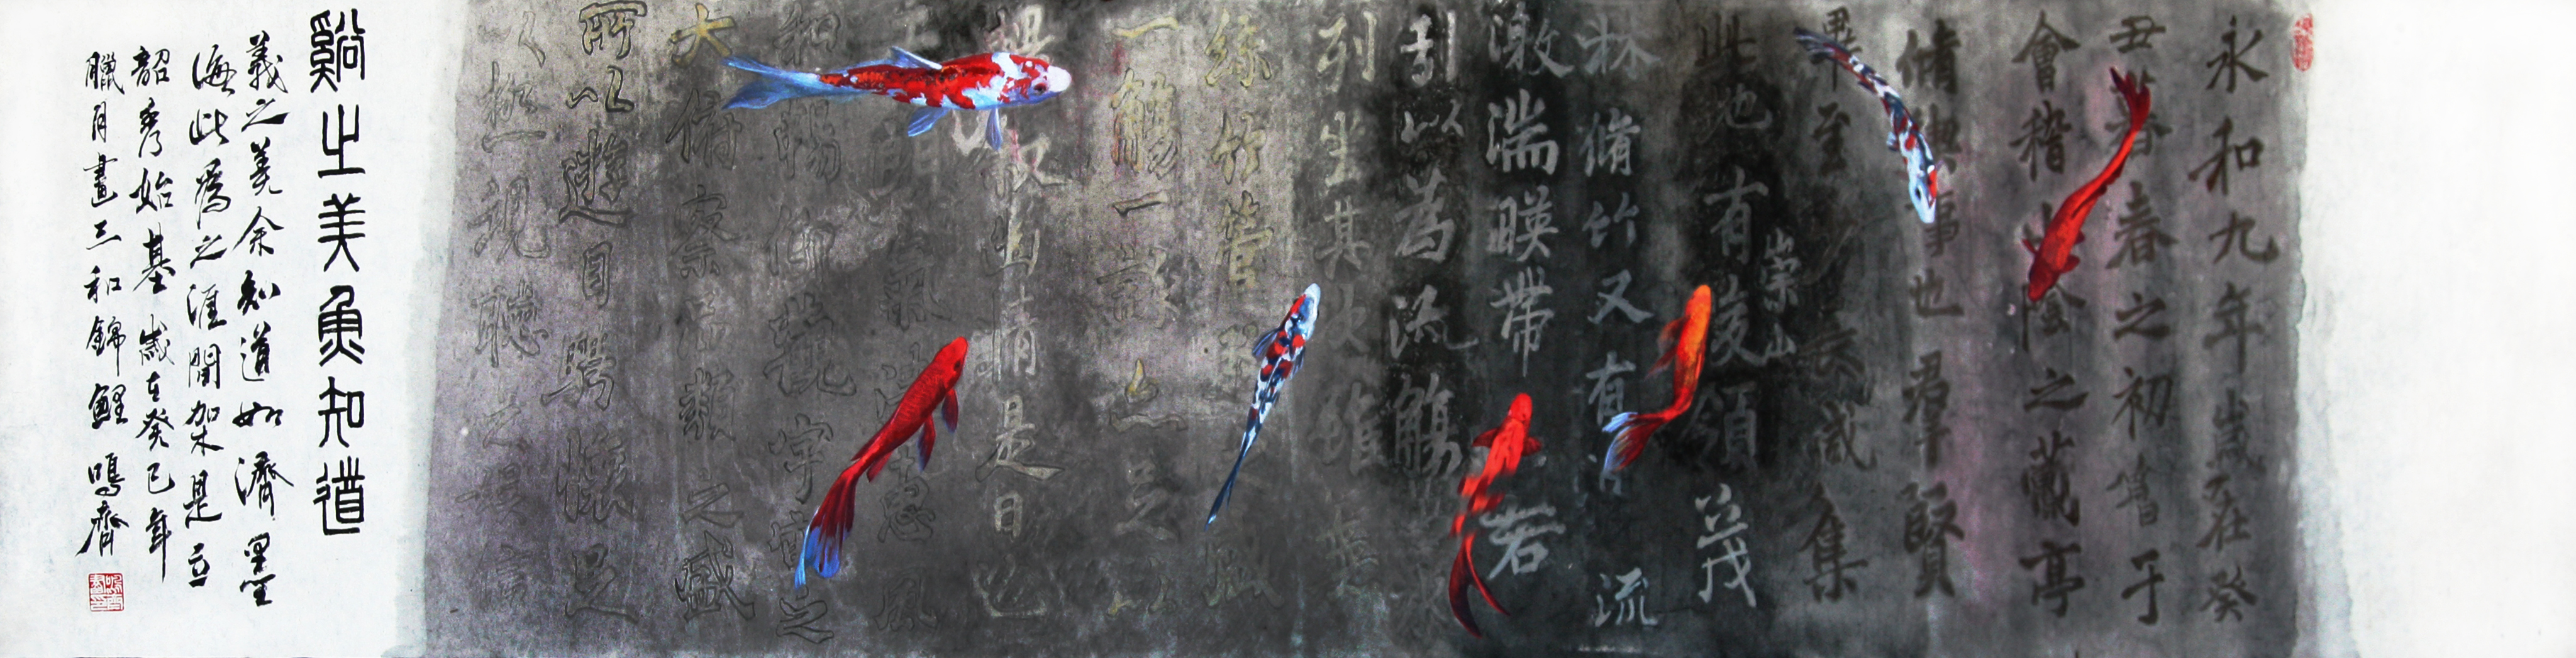 永和九年歲在癸
丑暮春之初曽于
會稽山陰之蘭亭
脩禊事也羣賢
畢至少長咸集
此也有峻領茂
崇山
林脩竹又有清流
激湍暎帶若
引以為流觴曲水
列坐其次雖無
絲竹管弦之盛
一觴一詠亦足以
暢叙幽情是日也
天朗氣清惠風
和暢仰觀宇宙之
大俯察品類之盛
所以遊目騁懷足
以極視聽之娛信
谿之美魚知道
義之美余知道如濟墨
海此為之涯開架是立
韶秀始基歲在癸巳年
臘月畫三和錦鯉鳴齊